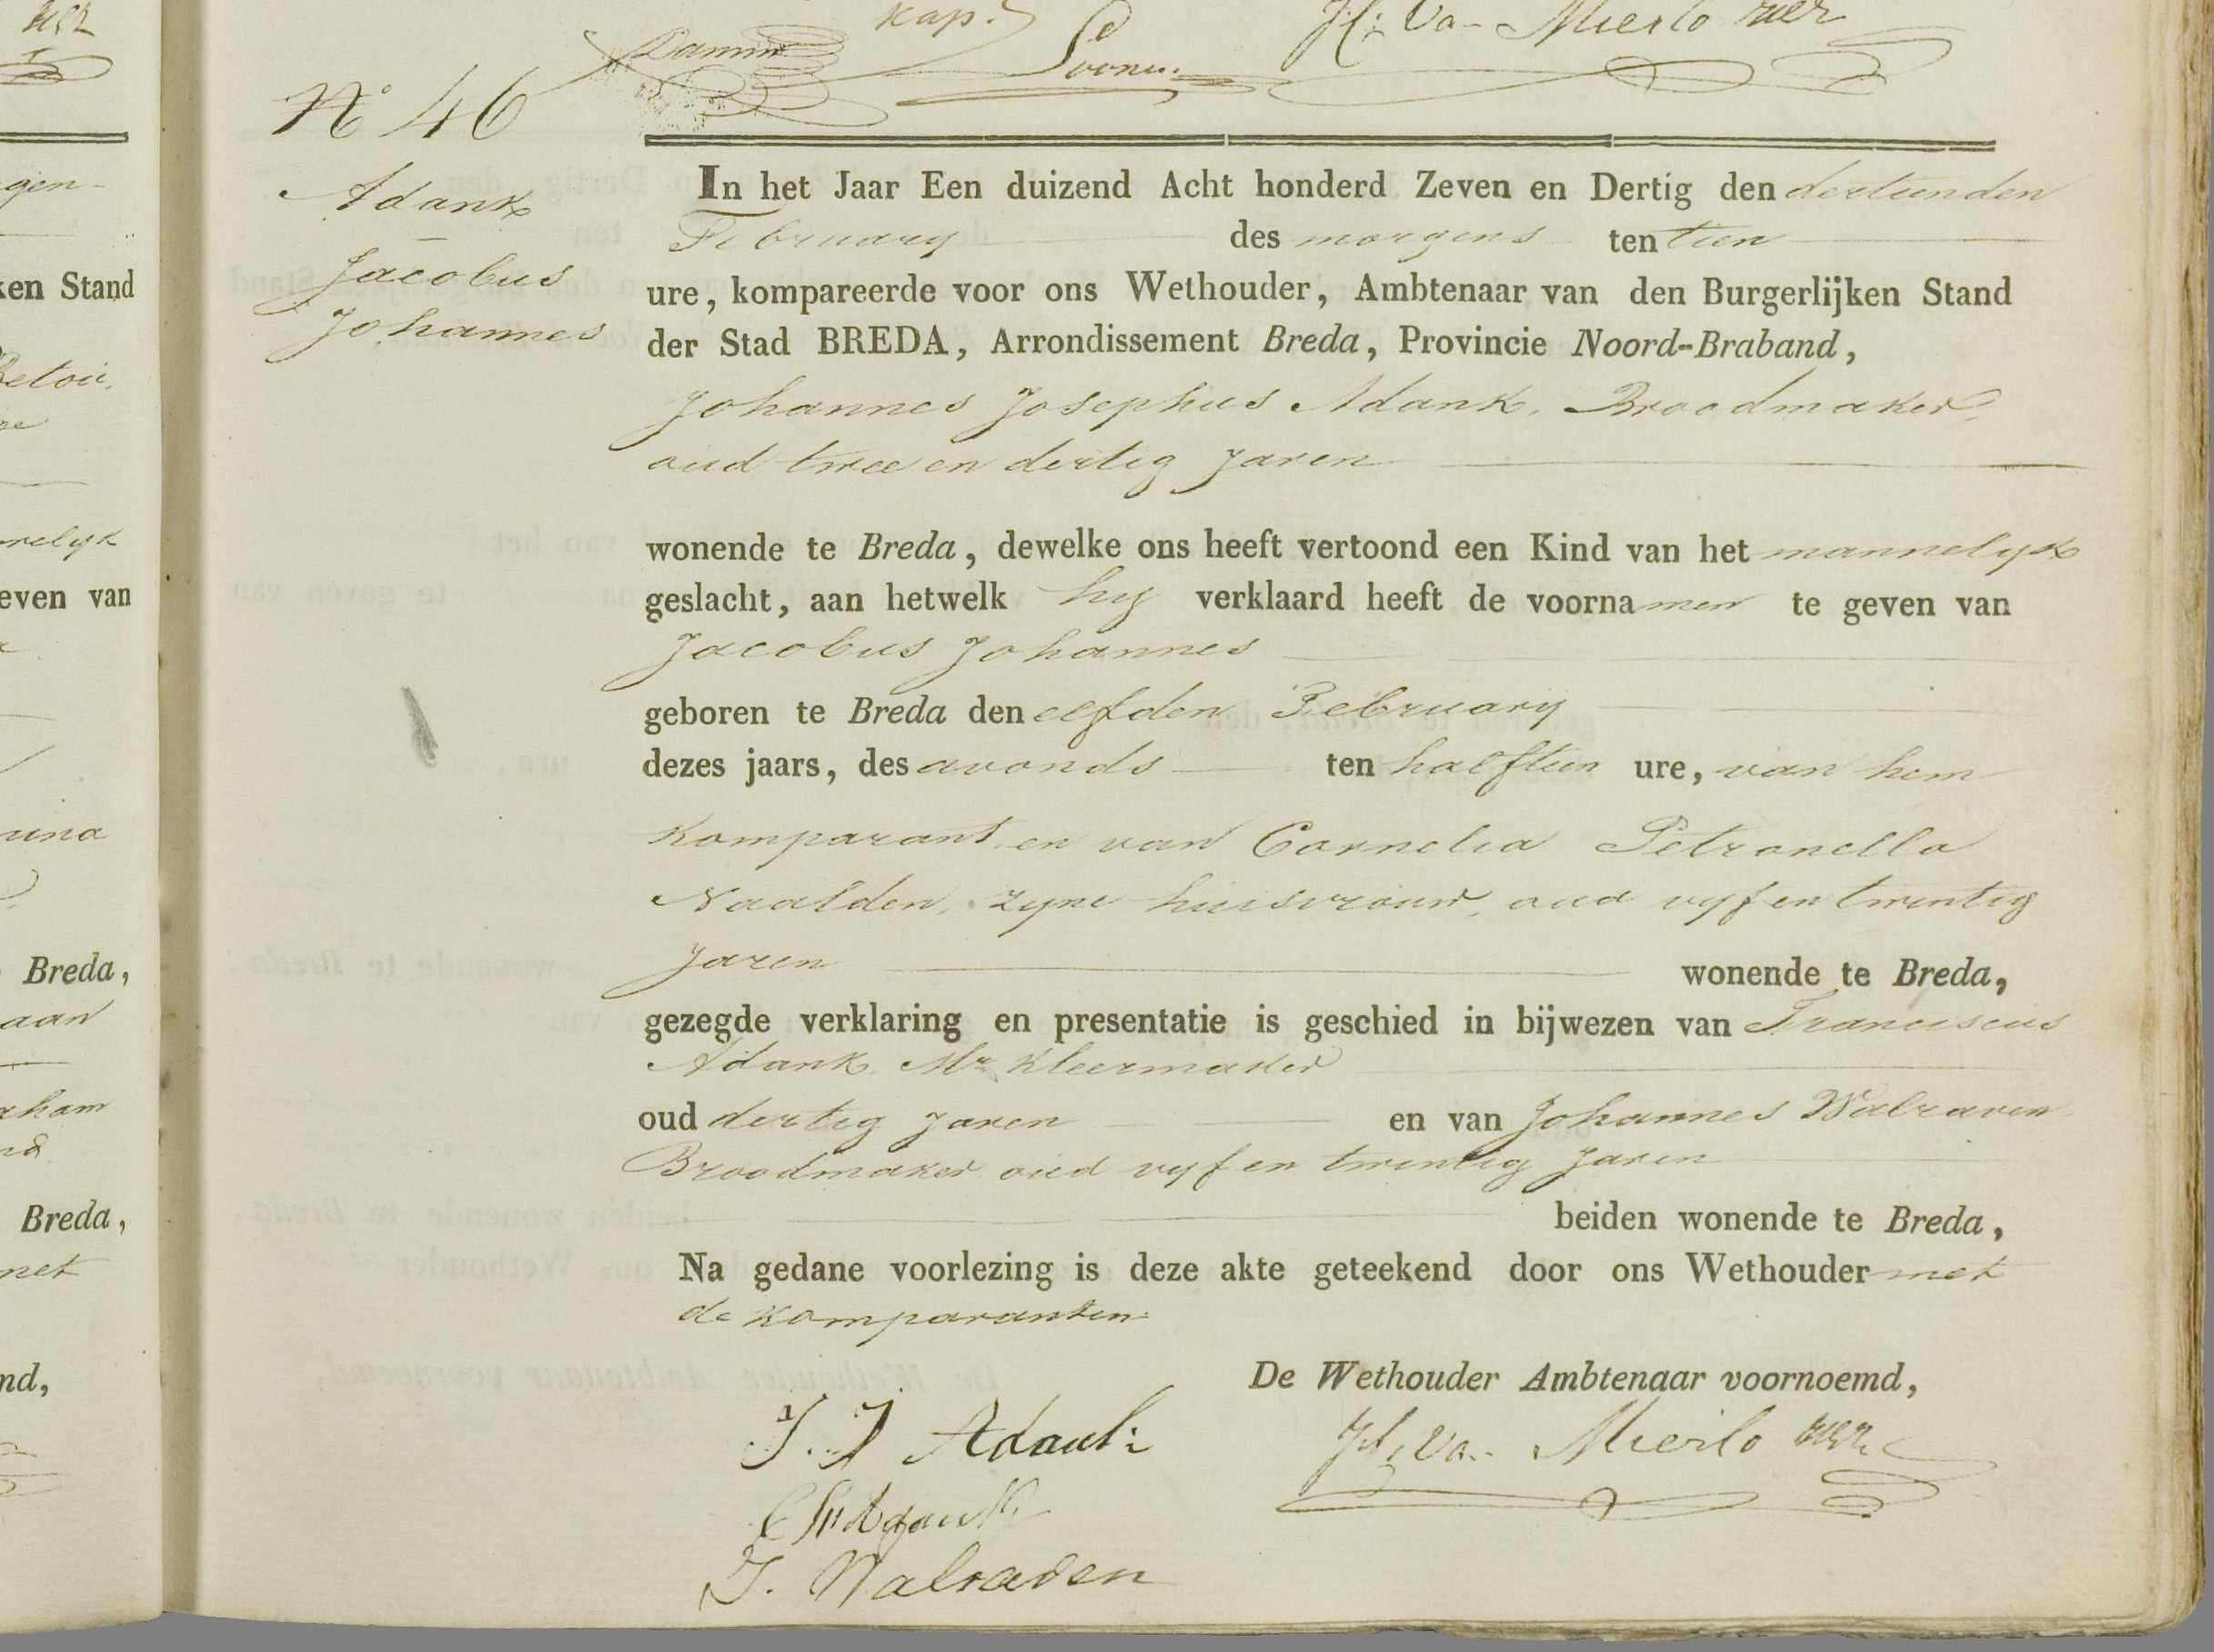 kap.
Damin
Soone.
H: Va- Mierlo
N° 46
Adank
Jacobus
Johannes
In het Jaar Een duizend Acht honderd Zeven en Dertig den dertienden
February des morgens ten tien
ure, kompareerde voor ons Wethouder, Ambtenaar van den Burgerlijken Stand
der Stad BREDA, Arrondissement Breda, Provincie Noord-Braband,
Johannes Josephus Adank, Broodmaker,
oud twee en dertig Jaren
wonende te Breda, dewelke ons heeft vertoond een Kind van het mannelyk
geslacht, aan hetwelk hy verklaard heeft de voornamen te geven van
Jacobus Johannes
geboren te Breda den elfden February
dezes jaars, des avonds ten halftien ure, van hem
Komparant en van Cornelia Petronella
Naalden, zyne huisvrouw, oud vyf en twintig
Jaren wonende te Breda,
gezegde verklaring en presentatie is geschied in bijwezen van Franciscus
Adank Mr Kleermaker
oud dertig Jaren en van Johannes Walraven
Broodmaker oud vyf en twintig Jaren
beiden wonende te Breda,
Na gedane voorlezing is deze akte geteekend door ons Wethouder met
de Komparanten
De Wethouder Ambtenaar voornoemd,
J. J Adank
Va- Mierlo
J. Walraven
gen-
ken Stand
relyk
even van
Breda,
aan
Breda,
met
nd,